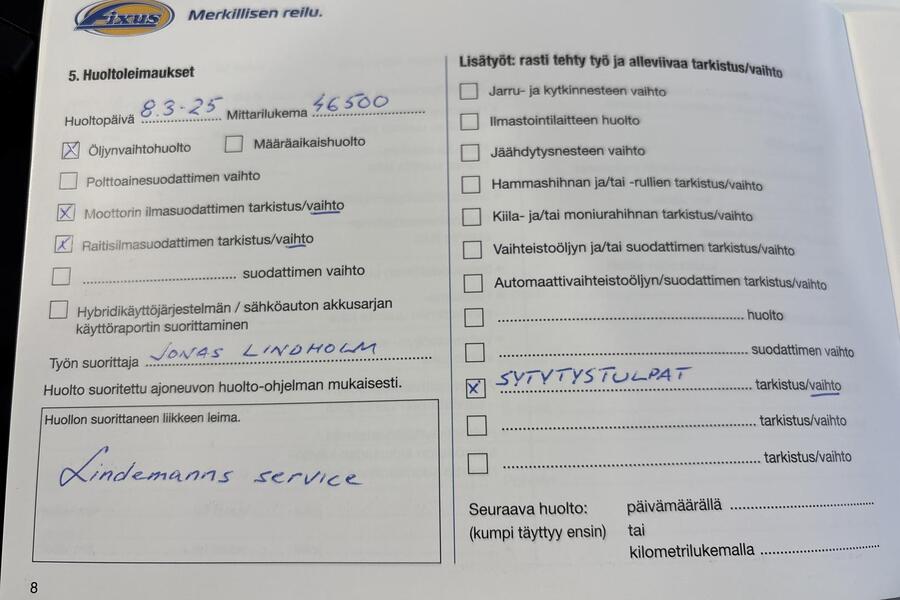 Fixus
Merkillisen reilu.
5. Huoltoleimaukset
Huoltopäivä 8.3-25 Mittarilukema 46500
Öljynvaihtohuolto Määräaikaishuolto
Polttoainesuodattimen vaihto
Moottorin ilmasuodattimen tarkistus/vaihto
Raitisilmasuodattimen tarkistus/vaihto
suodattimen vaihto
Hybridikäyttöjärjestelmän / sähköauton akkusarjan
käyttöraportin suorittaminen
Työn suorittaja JONAS LINDHOLM
Huolto suoritettu ajoneuvon huolto-ohjelman mukaisesti.
Huollon suorittaneen liikkeen leima.
Lindemanns service
8
Lisätyöt: rasti tehty työ ja alleviivaa tarkistus/vaihto
Jarru- ja kytkinnesteen vaihto
Ilmastointilaitteen huolto
Jäähdytysnesteen vaihto
Hammashihnan ja/tai -rullien tarkistus/vaihto
Kiila- ja/tai moniurahihnan tarkistus/vaihto
Vaihteistoöljyn ja/tai suodattimen tarkistus/vaihto
Automaattivaihteistoöljyn/suodattimen tarkistus/vaihto
huolto
suodattimen vaihto
SYTYTYSTULPAT tarkistus/vaihto
tarkistus/vaihto
tarkistus/vaihto
Seuraava huolto: päivämäärällä
(kumpi täyttyy ensin) tai
kilometrilukemalla